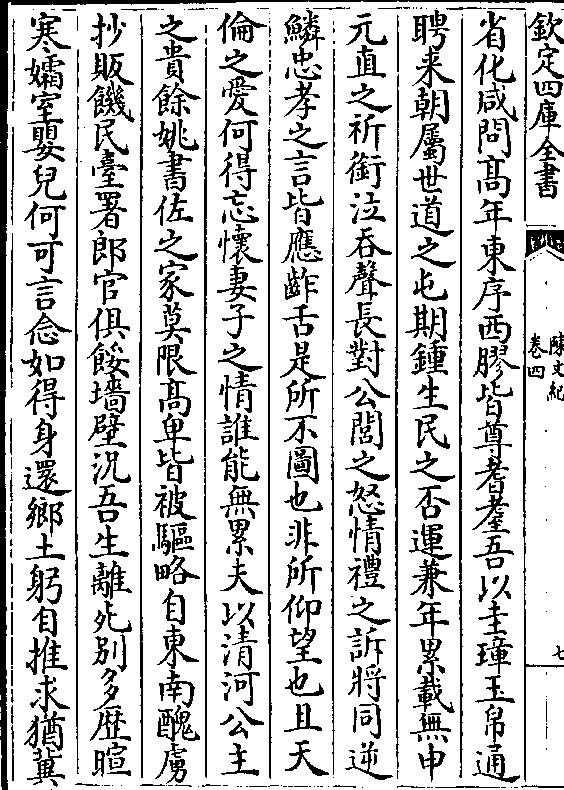 欽定四庫全書
陳文紀
卷四
七
省化咸問高年東序西膠皆尊耆耋吾以圭璋玉帛通
聘来朝屬世道之屯期鍾生民之否運兼年累載無申
元直之祈銜泣吞聲長對公閭之怒情禮之訴將同逆
鱗忠孝之言皆應齚舌是所不圖也非所仰望也且天
倫之愛何得忘懐妻子之情誰能無累夫以清河公主
之貴餘姚書佐之家莫限髙卑皆被驅略自東南醜虜
抄販饑民臺署郎官俱餒墻壁況吾生離死别多歴暄
寒孀室嬰兒何可言念如得身還鄉土躬自推求猶冀